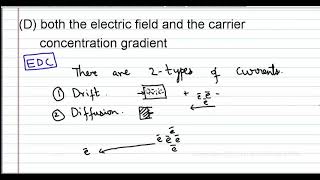 (D) both the electric field and the carrier
concentration gradient
EDC
There are 2-types of currents.
① Drift.
+ ē ē -
ē
② Diffusion.
ē
ē ē ē
ē
ē